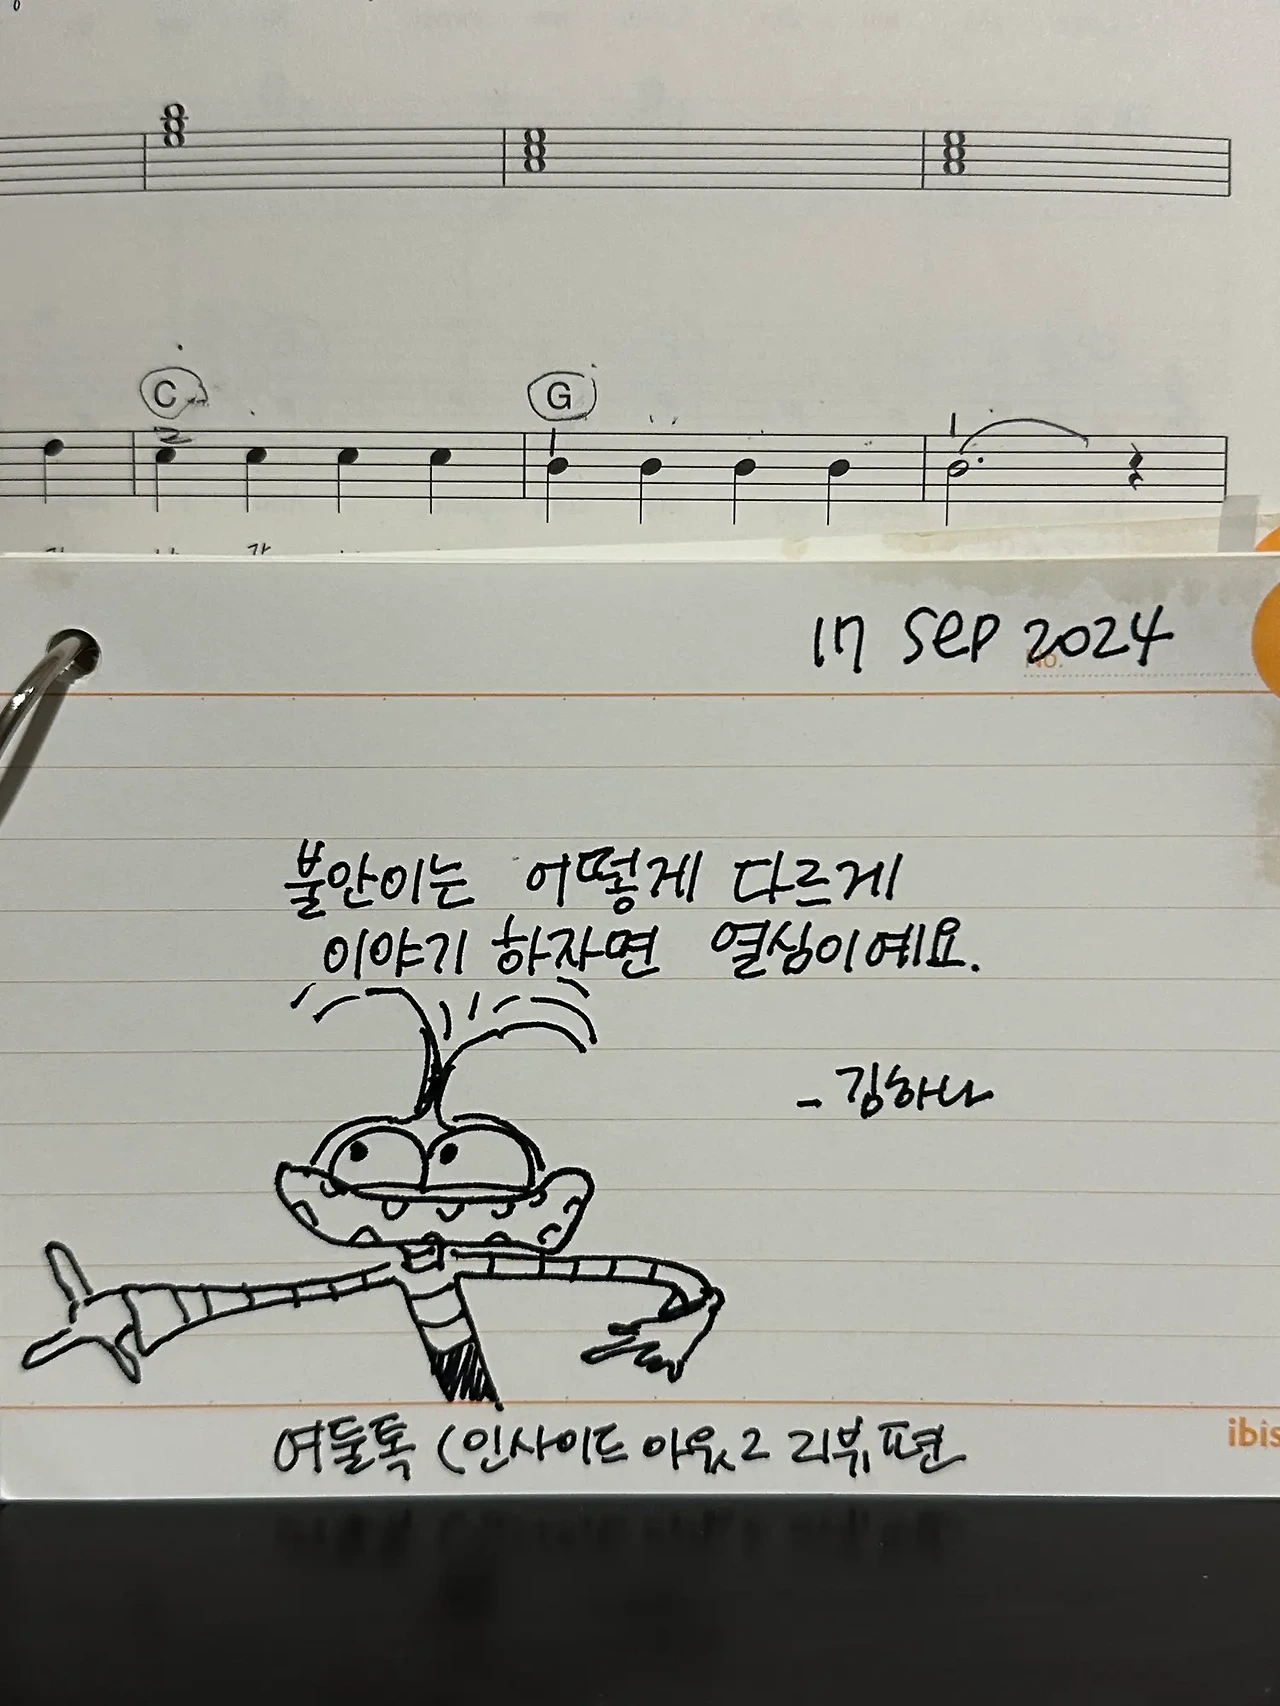 C
G
17 Sep 2024
No.
불안이는 어떻게 다르게
이야기 하자면 열심이예요.
- 김하나
여둘톡 (인사이드 아웃2 리뷰편
ibis